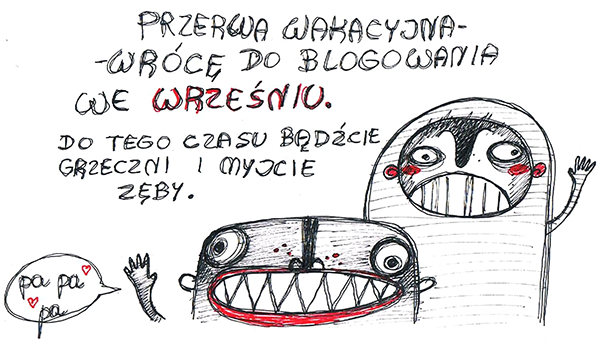 PRZERWA WAKACYJNA-
-WRÓCĘ DO BLOGOWANIA
WE WRZEŚNIU.
DO TEGO CZASU BĘDŹCIE
GRZECZNI I MYJCIE
ZĘBY.
pa pa
pa